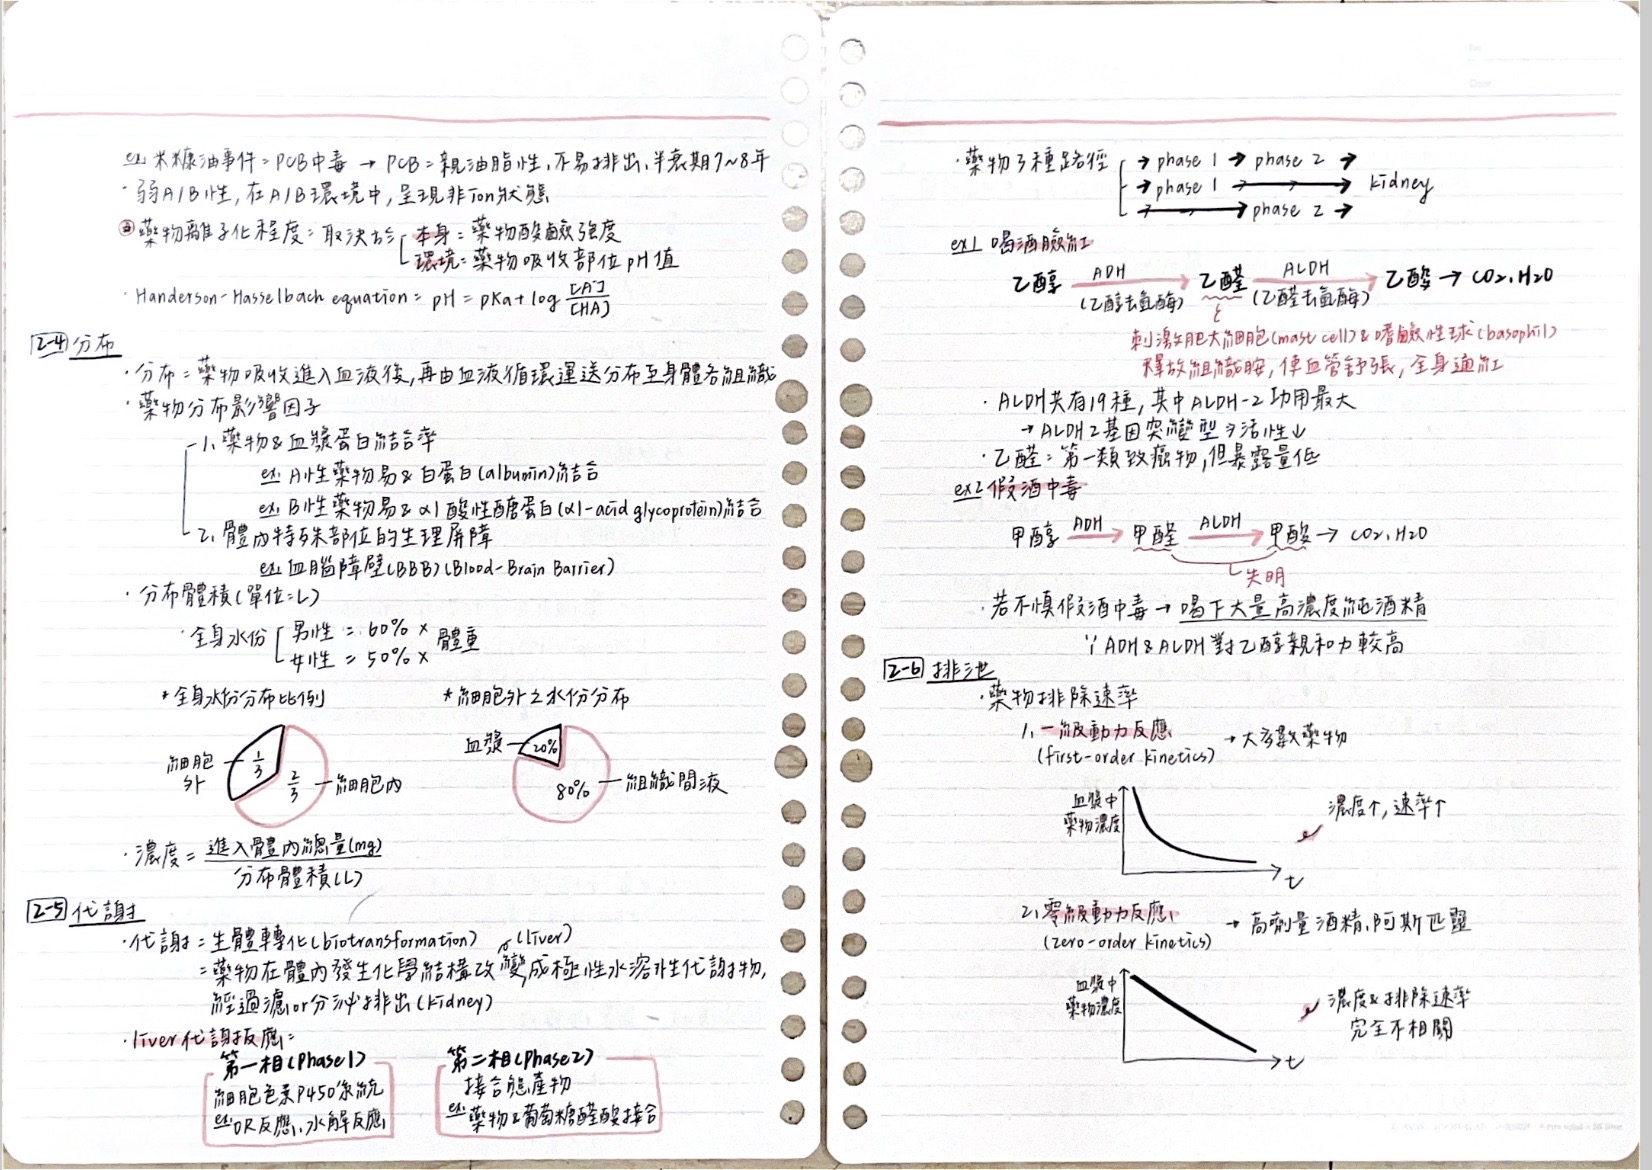 ex. 米糠油事件=PCB中毒 → PCB=親油脂性,不易排出,半衰期7~8年
·弱A/B性,在A/B環境中,呈現非ion狀態
③藥物離子化程度:取決於 本身=藥物酸鹼強度
環境=藥物吸收部位pH值
·Handerson-Hasselbach equation = pH = pKa + log [A⁻]/[HA]
2-4 分布
·分布=藥物吸收進入血液後,再由血液循環運送分布至身體各組織
·藥物分布影響因子
1. 藥物&血漿蛋白結合率
ex. A性藥物易&白蛋白(albumin)結合
ex. B性藥物易&α1酸性醣蛋白(α1-acid glycoprotein)結合
2. 體內特殊部位的生理屏障
ex. 血腦障壁(BBB)(Blood-Brain Barrier)
·分布體積(單位=L)
·全身水份 男性=60%× 體重
女性=50%×
*全身水份分布比例 *細胞外之水份分布
細胞外 1/3 2/3 細胞內
血漿 20% 80% 組織間液
·濃度= 進入體內總量(mg)
分布體積(L)
2-5 代謝
·代謝=生體轉化(biotransformation) (liver)
=藥物在體內發生化學結構改變成極性水溶性代謝物,
經過濾or分泌排出(kidney)
·liver代謝反應:
第一相(Phase1) 第二相(Phase2)
細胞色素P450系統 接合態產物
ex. OR反應、水解反應 ex. 藥物&葡萄糖醛酸接合
·藥物3種路徑 → phase 1 → phase 2 →
→ phase 1 → → kidney
→ phase 2 →
ex1 喝酒臉紅
乙醇 ADH (乙醇去氫酶) 乙醛 ALDH (乙醛去氫酶) 乙酸 → CO2、H2O
刺激肥大細胞(mast cell)&嗜鹼性球(basophil)
釋放組織胺,使血管舒張,全身通紅
·ALDH共有19種,其中ALDH-2功用最大
→ALDH2基因突變型⇒活性↓
·乙醛:第一類致癌物,但暴露量低
ex2 假酒中毒
甲醇 ADH → 甲醛 ALDH → 甲酸 → CO2、H2O
失明
·若不慎假酒中毒→喝下大量高濃度純酒精
∵ADH&ALDH對乙醇親和力較高
2-6 排泄
·藥物排除速率
1. 一級動力反應 →大多數藥物
(first-order kinetics)
血漿中
藥物濃度
濃度↑,速率↑
t
2. 零級動力反應 →高劑量酒精、阿斯匹靈
(zero-order kinetics)
血漿中
藥物濃度
濃度&排除速率
完全不相關
t